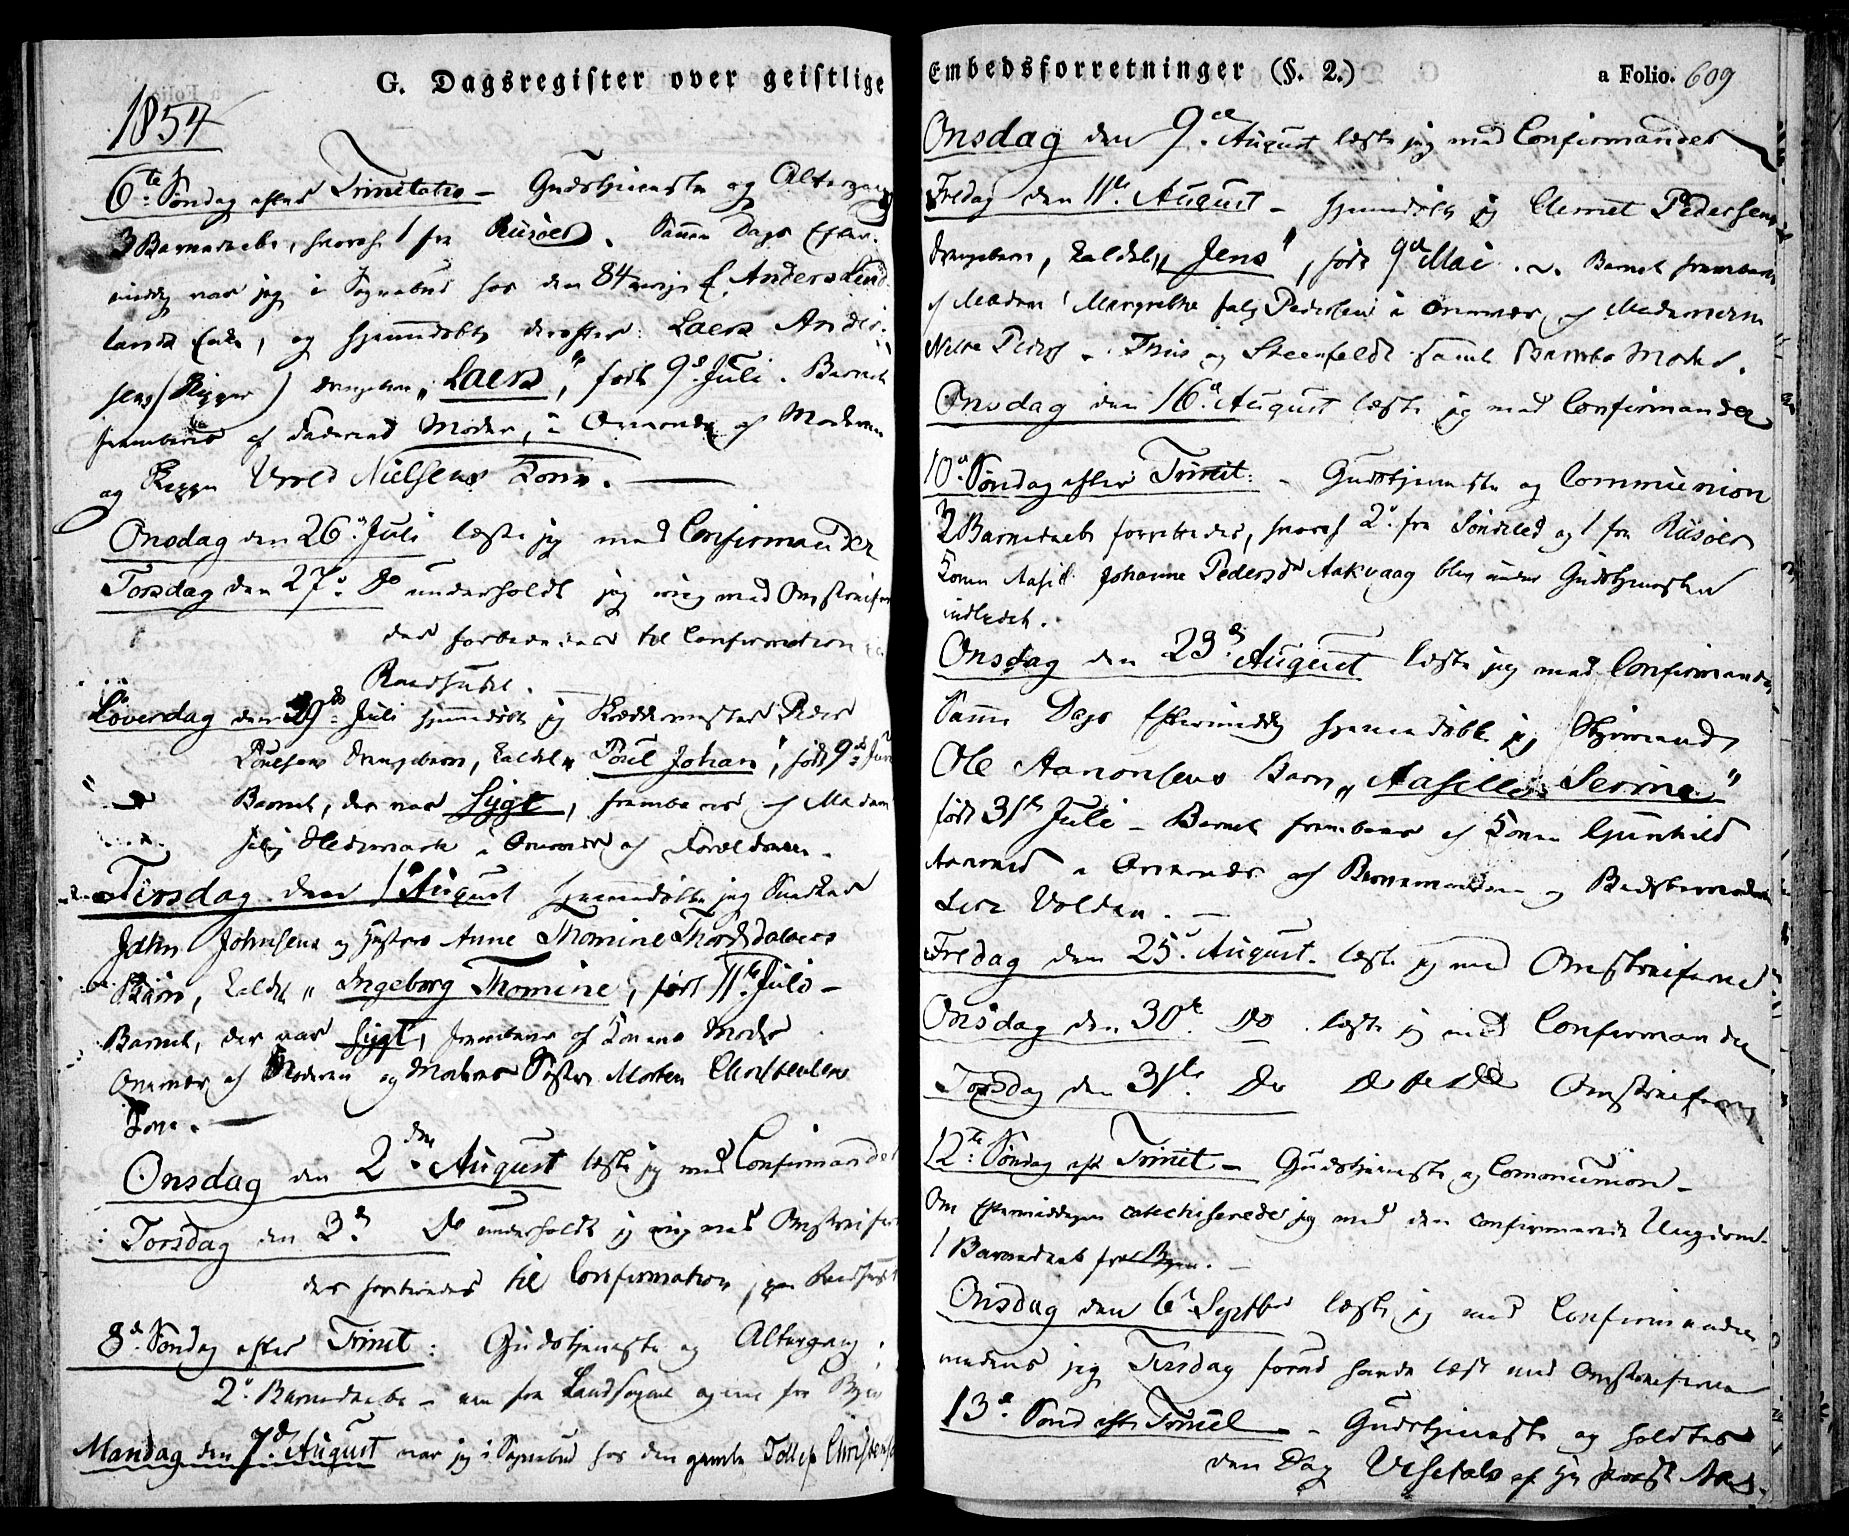 G. Dagsregister over geistlige
1854
6te Søndag efter Trinitatis - Gudstjeneste og Altergang
3 Barnedaab, hvoraf 1 fra Risøer. Samme Dags Efter-
middag var jeg i Sognebud hos den 84 aarige
og hjemmedøbte derefter Laers Ander-
sens drengebarn, "Laers", født 9de Juli. Barnet
frembaaret af Faderens Moder, i Overvær af Moderen
og Nielsens Kone.
Onsdag den 26 Juli læste jeg med Confirmander
Torsdag den 27 Do underholdt jeg mig med Omstreifer
der forberedes til Confirmation
Raadhuset.
Løverdag den 29de Juli hjemmedøbt jeg Skræddermester Peder
Poulsens Drengebarn, kaldet "Poul Johan", født 9de
Barnet, der var sygt, frembaaret af Madam
Hedemark i Overvær af Forældrene.
Tirsdag den 1 August hjemmedøbte jeg Snedker
John Johnsens og Hustru Anne Thomine Thordsdatters
Barn, kaldet "Ingeborg Thomine", født 11te Juli -
Barnet, der var sygt, frembaaret af Konens Moder
Overvær af Moderen og Moderens Søster Morten Christensens
Kone.
Onsdag den 2den August læste jeg med Confirmander
Torsdag den 3de Do underholdt jeg mig med Omstreifer
der forberedes til Confirmation paa Raadhuset
8de Søndag efter Trinit: Gudstjeneste og Altergang.
2 Barnedaabe - en fra Landsognet og en fra Byen
Mandag den 7de August var jeg i Sognebud hos den gamle Tollef Christensen
Embedsforretninger (§. 2.)
a Folio. 609
Onsdag den 9de August læste jeg med Confirmander
Fredag den 11te August - hjemmedøbt jeg Clemet Pedersens
drengebarn, kaldet "Jens", født 9de Mai. Barnet frembaaret
af Madam Margrethe Pedersen i Overvær af Madamerne
og Steenfeldt samt Barnets Moder.
Onsdag den 16de August læste jeg med Confirmander
10de Søndag efter Trinit: - Gudstjeneste og Communion
3 Barnedaab forrettedes, hvoraf 2 fra Søndeled og 1 fra Risøer
Konen Johanne Pedersdr Aakvaag blev under Gudstjenesten
indledet.
Onsdag den 23de August læste jeg med Confirmander
Samme Dags Eftermiddag hjemmedøbte jeg Styrmand
Ole Aanonsens Barn, "Aasille Serine"
født 31te Juli - Barnet frembaaret af Konen Gunhild
i Overvær af Barnemoderen og
Volden.
Fredag den 25 August læste jeg med Omstreiferne
Onsdag den 30te Do læste jeg med Confirmander
Torsdag den 31te Do Omstreiferne
12te Søndag eft Trinit - Gudstjeneste og Communion -
Om Eftermiddagen catechiserede jeg med den confirmerede Ungdom.
1 Barnedaab fra Byen.
Onsdag den 6te Septbr læste jeg med Confirmander
medens jeg Tirsdag forud havde læst med Omstreiferne
13de Sønd eft Trinit - Gudstjeneste og holdtes
den Dag Visetats af Hr Provst Aas.